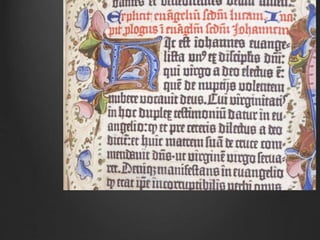 dantes et benedicentes deum amen
Explicit euāgeliū scdm lucam. Inci
pit plogus ī euāgliū scdm Johannem
Hic est iohannes euange-
lista vn⁹ ex discīplis dnī:
qui virgo a deo electus ē:
quē de nuptijs volentem
nubere vocauit deus. Cui virginitati
in hoc duplex testimoniū datur in eu-
angelio: ꝙ et pre ceteris dilectus a deo
dicit: et huic matrem suā de cruce com-
mendauit dns: ut virginē virgo serua-
ret. Deniqȝ manifestans in euangelio
ꝙ erat ipe incorruptibilis verbi opus